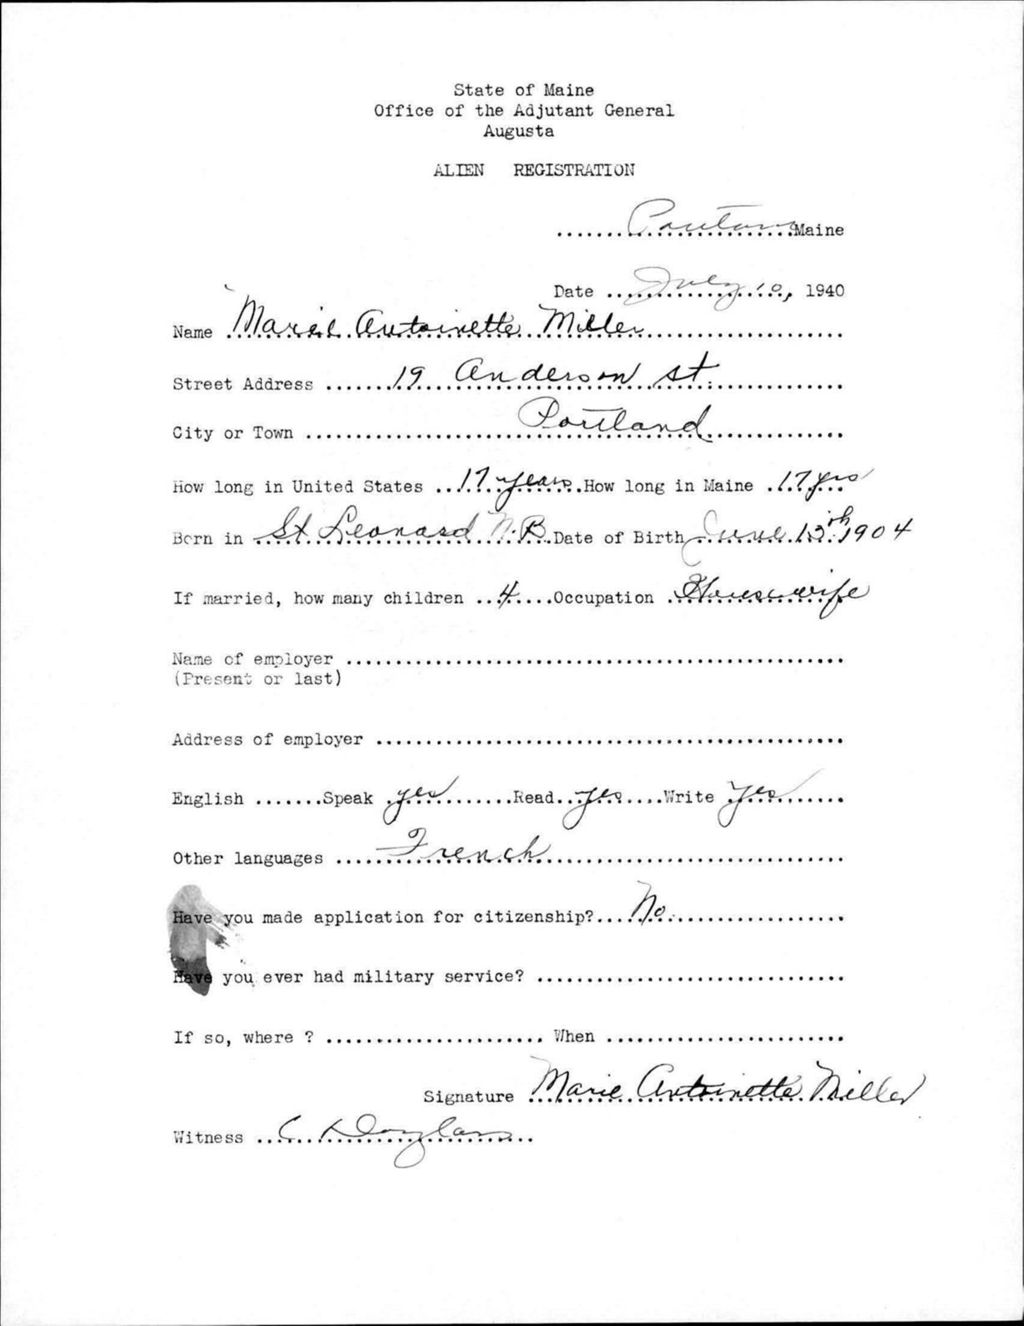 State of Maine
Office of the Adjutant General
Augusta
ALIEN REGISTRATION
....... ..........Maine
Date ...July 10, 1940
Name Marie Antoinette Miller
Street Address .......19 Anderson St.
City or Town ................Portland
How long in United States ..17 years.How long in Maine .17 yrs
Born in St Leonard N.B. Date of Birth June 13th 1904
If married, how many children ..4....Occupation .Housewife
Name of employer ................................................
(Present or last)
Address of employer ................................................
English .......Speak .yes.........Read..yes....Write yes.......
Other languages .....French..............................
Have you made application for citizenship?...No..................
Have you ever had military service? ...............................
If so, where ? ...................... When ........................
Signature Marie Antoinette Miller
Witness ..C.